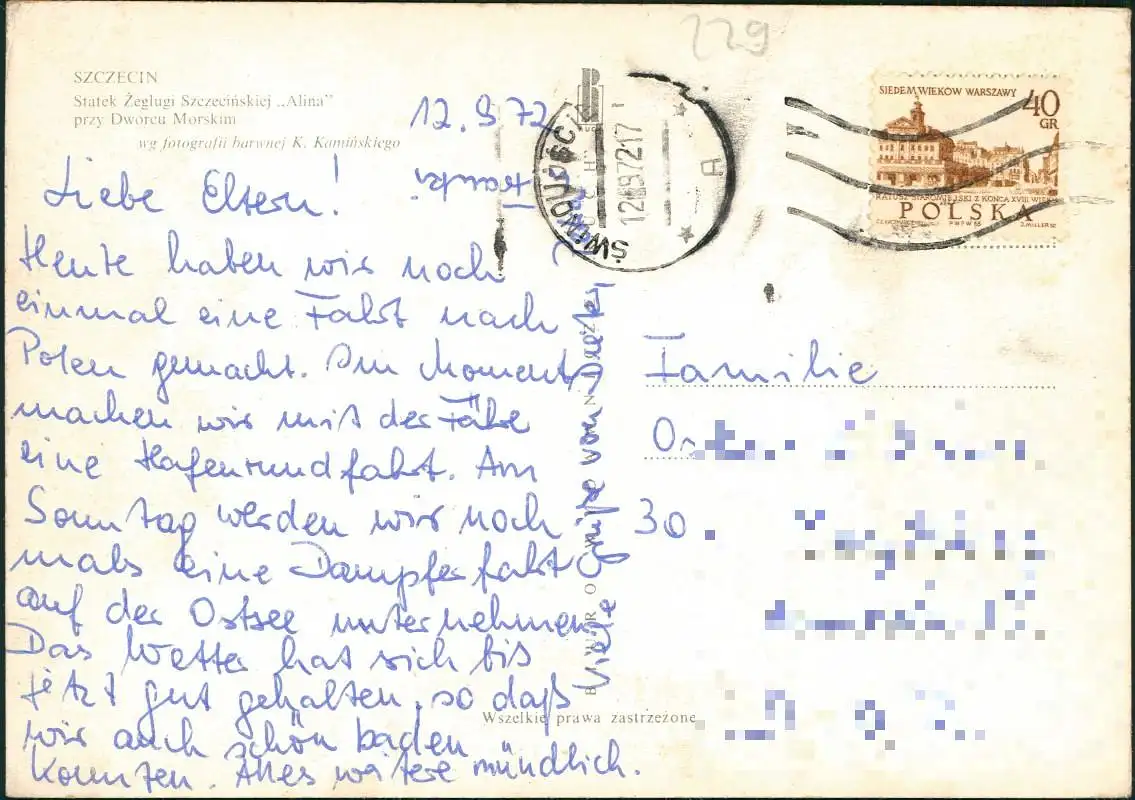 SZCZECIN
Statek Żeglugi Szczecińskiej „Alina”
przy Dworcu Morskim
wg fotografii barwnej K. Kamińskiego
229
12.9.72
Liebe Eltern!
Heute haben wir noch
einmal eine Fahrt nach
Polen gemacht. Im Moment
machen wir mit der Fähre
eine Hafenrundfahrt. Am
Sonntag werden wir noch
mals eine Dampferfahrt
auf der Ostsee unternehmen.
Das Wetter hat sich bis
jetzt gut gehalten, so daß
wir auch schön baden
konnten. Alles weitere mündlich.
Viele Grüße von
ŚWINOUJŚCIE
12.-9.72.17
SIEDEM WIEKÓW WARSZAWY
40
GR
RATUSZ STAROMIEJSKI Z KOŃCA XVIII WIEKU
POLSKA
Familie
30
Wszelkie prawa zastrzeżone